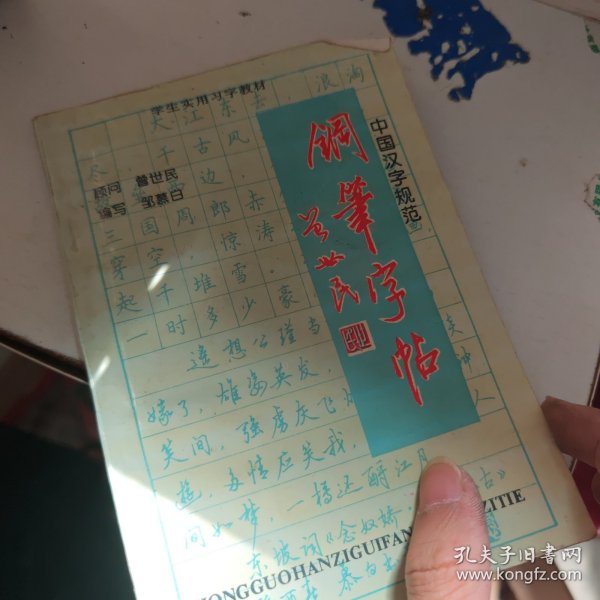 学生实用习字教材
中国汉字规范
鋼筆字帖
曾世民
顾问 曾世民
编写 邹慕白
大江东去，浪淘
尽
千古风
边，
三国周郎赤
穿空，惊涛
起千堆雪。
一时多少豪
遥想公瑾当
嫁了，雄姿英发，
笑间，强虏灰飞
多情应笑我，
人
间如梦，一樽还酹江月
东坡词《念奴娇 古》
ZHONGGUOHANZIGUIFAN
ZITIE
孔夫子旧书网
www.kongfz.com